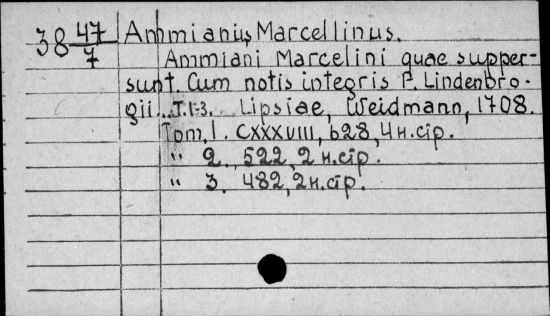 38 47/7 Ammianus Marcellinus.
Ammiani Marcelini quae supper-
sunt. Cum notis integris F. Lindenbro-
gii... T.1-3. Lipsiae, Weidmann, 1708.
Tom, I. CXXXVIII, 628, 4 н.стр.
" 2. , 522, 2 н.стр.
" 3. 482, 2 н.стр.